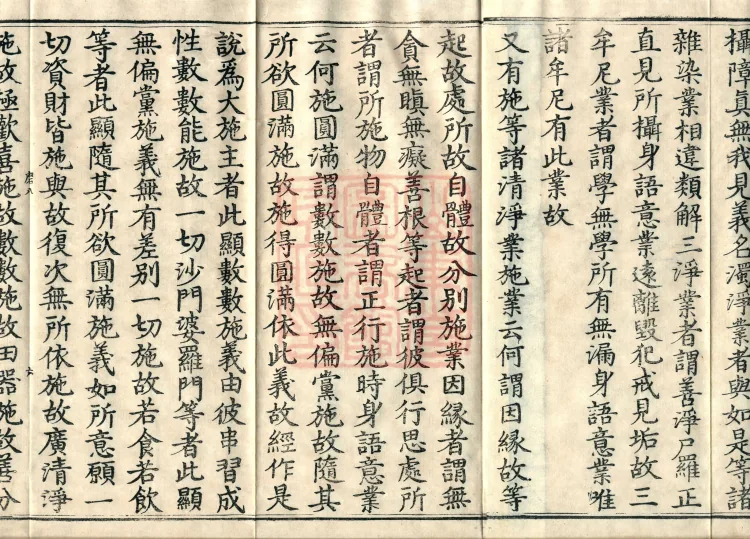 攝障真無我見義名濁淨業者與如是等諸
雜染業相違類解三淨業者謂善淨尸羅正
直見所攝身語意業遠離毀犯戒見垢故三
牟尼業者謂學無學所有無漏身語意業唯
諸牟尼有此業故
又有施等諸清淨業施業云何謂因緣故等
起故處所故自體故分別施業因緣者謂無
貪無瞋無癡善根等起者謂彼俱行思處所
者謂所施物自體者謂正行施時身語意業
云何施圓滿謂數數施故無偏黨施故隨其
所欲圓滿施故施得圓滿依此義故經作是
說爲大施主者此顯數數施義由彼串習成
性數數能施故一切沙門婆羅門等者此顯
無偏黨施義無有差別一切施故若食若飲
等者此顯隨其所欲圓滿施義如所意願一
切資財皆施與故復次無所依施故廣清淨
施故極歡喜施故數數施故田器施故善分